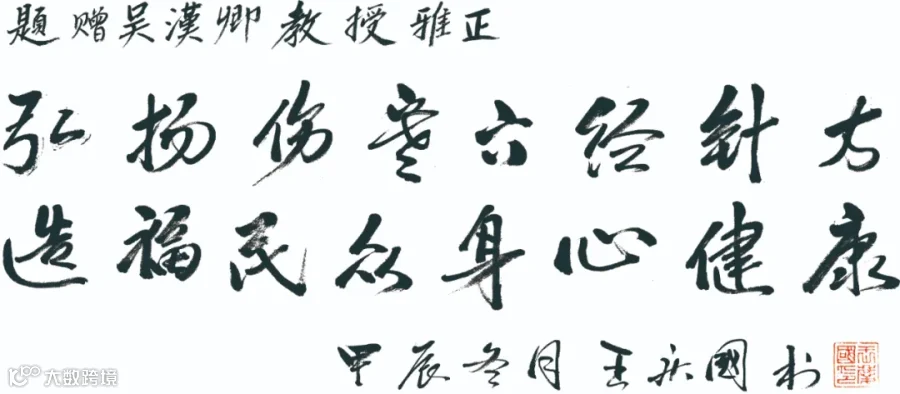 題赠吴漢卿教授雅正
弘扬伤寒六经针方
造福民众身心健康
甲辰冬月 王庆國
大数跨境